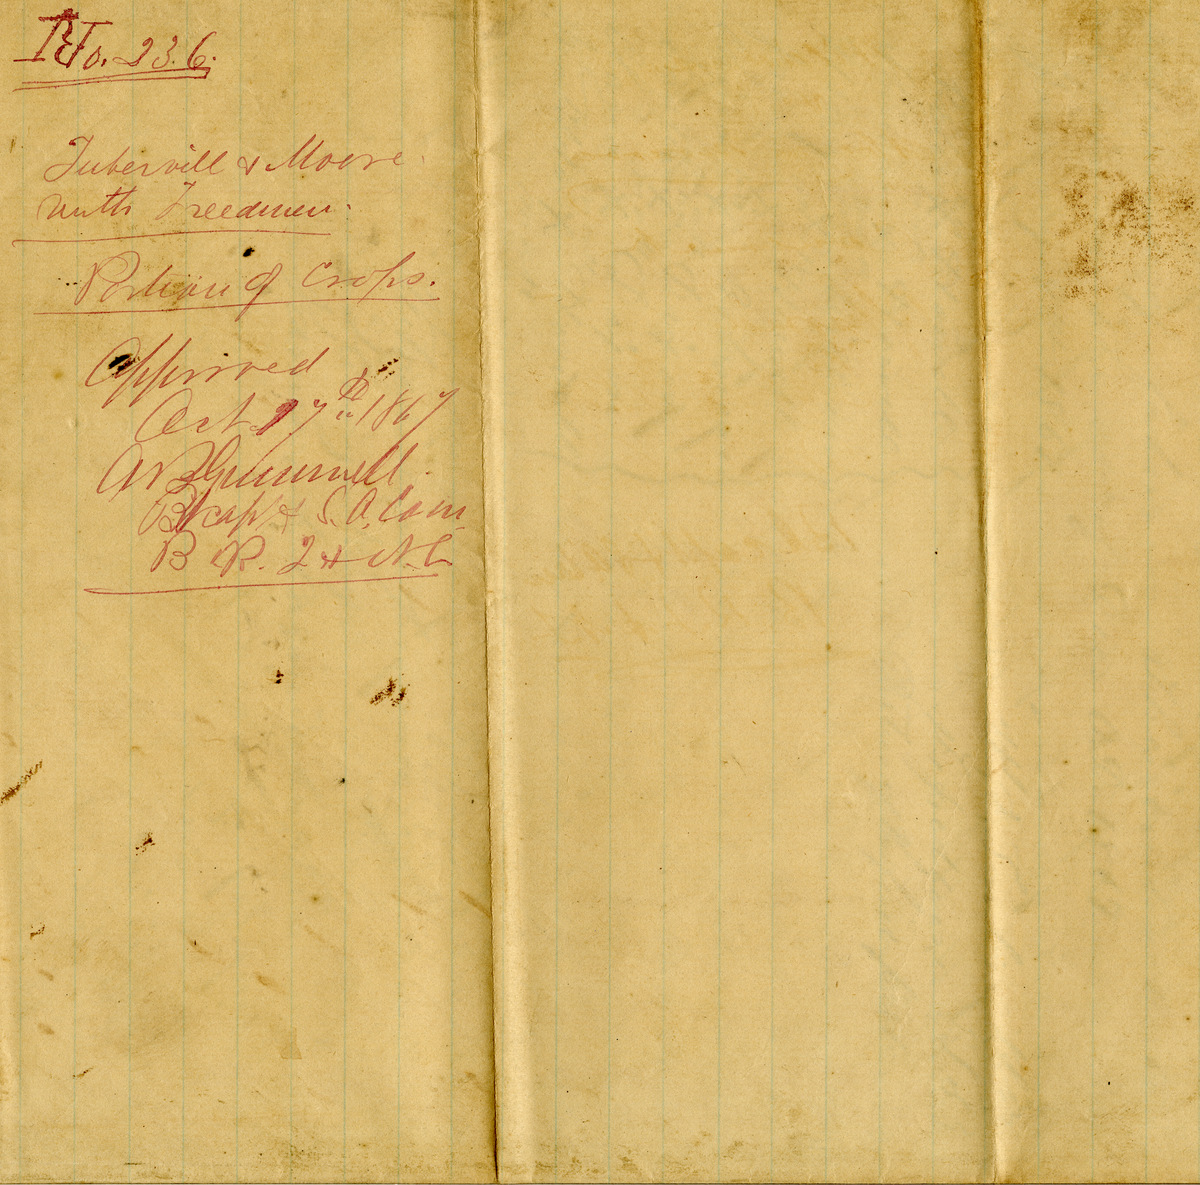 No. 236.
Tubervill & Moore
with Freedmen.
Portion of Crops.
Approved
Oct 27th 1867
A B Grumwell
Bt Capt & S. A. Com
B R. F & A. L